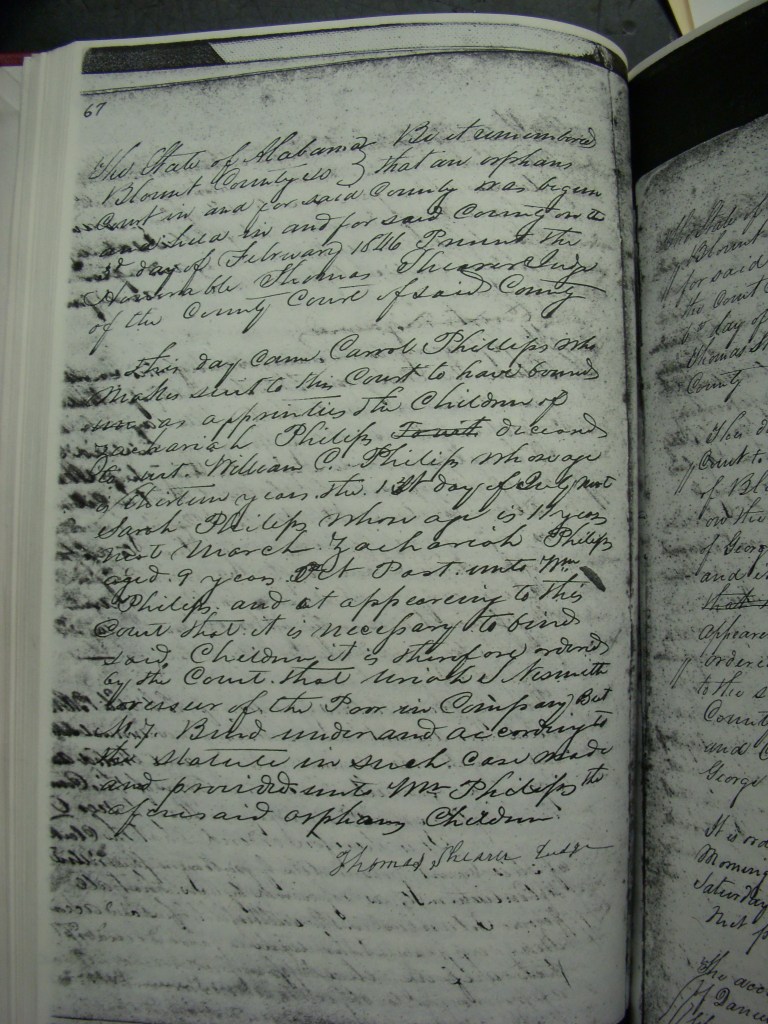 67
The State of Alabama } Be it remembered
Blount County ss } that an orphans
Court in and for said County was begun
and held in and for said County on the
3d day of February 1846 Present the
Honorable Thomas Shearer Judge
of the County Court of said County
This day came Carrol Phillips who
makes suit to this Court to have bound
as apprinties the Children of
Zachariah Philips deceased
to wit. William C. Philips whose age
is thirteen years the 1st day of July next
Sarah Philips whose age is 11 years
next March Zachariah Philips
aged 9 years Oct Past. unto Wm
Philips. and it appearing to this
Court that it is necessary to bind
said Children it is therefore ordered
by the Court that Uriah Nesmith
overseer of the Poor in Company Beat
No 7. Bind under and according to
the statute in such case made
and provided unto Wm Philips the
aforesaid orphans Children
Thomas Shearer Judge
The State of
Blount
for said
the Court
day of
Thomas Sh
County
This d
Court to
of Bl
on the
of Georg
and it
that
appeare
ordere
to the s
Count
and C
George
It is ord
Morning
Saturday
The acc
of Danie